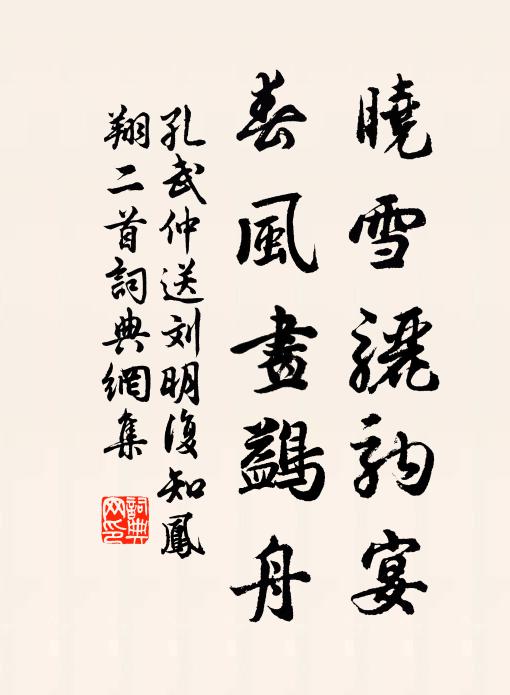 曉雪驪駒宴
春風畫鷁舟
孔武仲送刘明復知鳳
翔二首詞典網集
詞典
网印